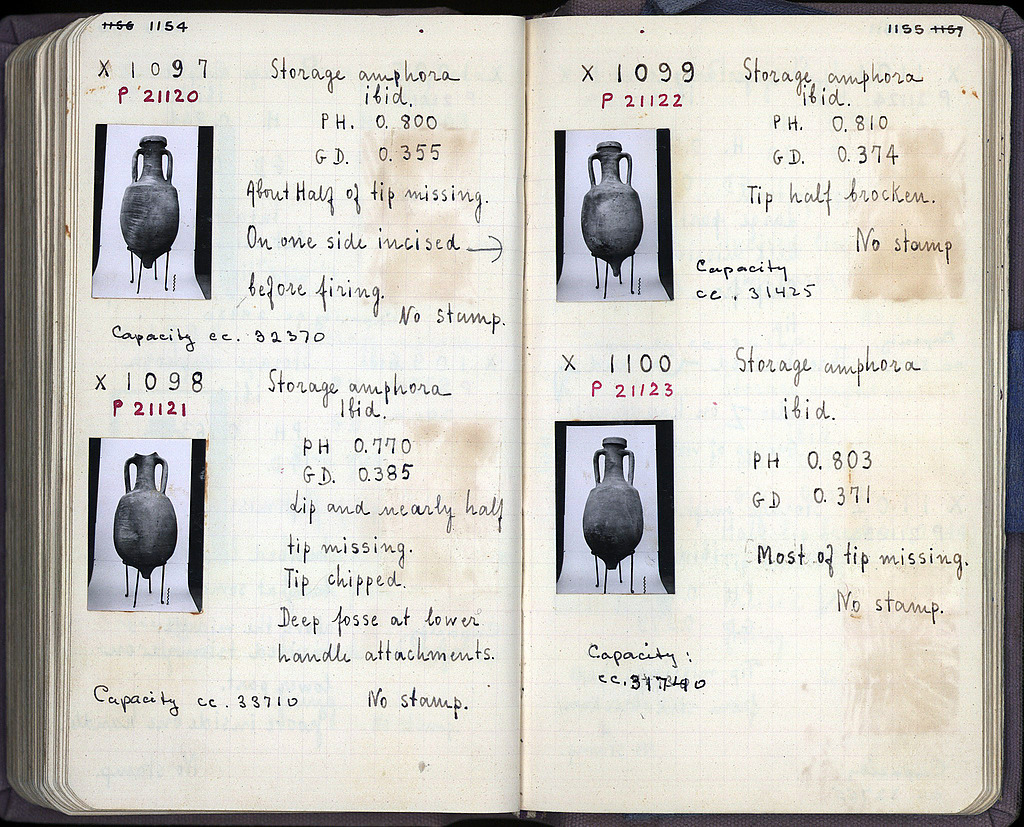 1156 1154
X 1097 Storage amphora
P 21120 ibid.
PH. 0.800
GD. 0.355
About Half of tip missing.
On one side incised →
before firing.
No stamp.
Capacity cc. 32370
X 1098 Storage amphora
P 21121 Ibid.
PH 0.770
GD. 0.385
Lip and nearly half
tip missing.
Tip chipped.
Deep fosse at lower
handle attachments.
Capacity cc. 33710 No stamp.
1155 1157
X 1099 Storage amphora
P 21122 ibid.
PH. 0.810
GD. 0.374
Tip half brocken.
No stamp
Capacity
cc. 31425
X 1100 Storage amphora
P 21123 ibid.
PH 0.803
GD 0.371
Most of tip missing.
No stamp.
Capacity:
cc.